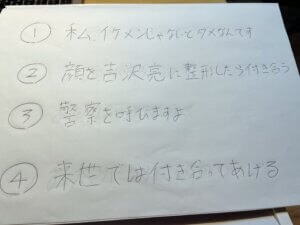 ① 私、イケメンじゃないとダメなんです
② 顔を吉沢亮に整形したら付き合う
③ 警察を呼びますよ
④ 来世では付き合ってあげる